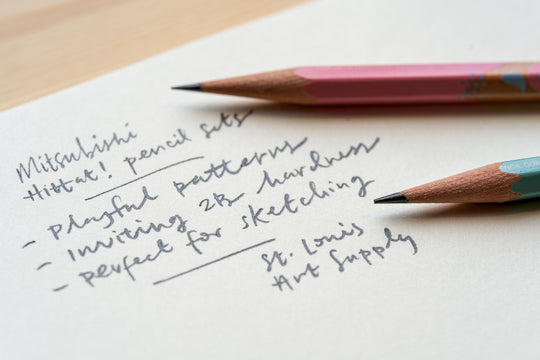 Mitsubishi
Hittat! pencil sets
- playful patterns
- inviting 2B hardness
- perfect for sketching
St. Louis
Art Supply